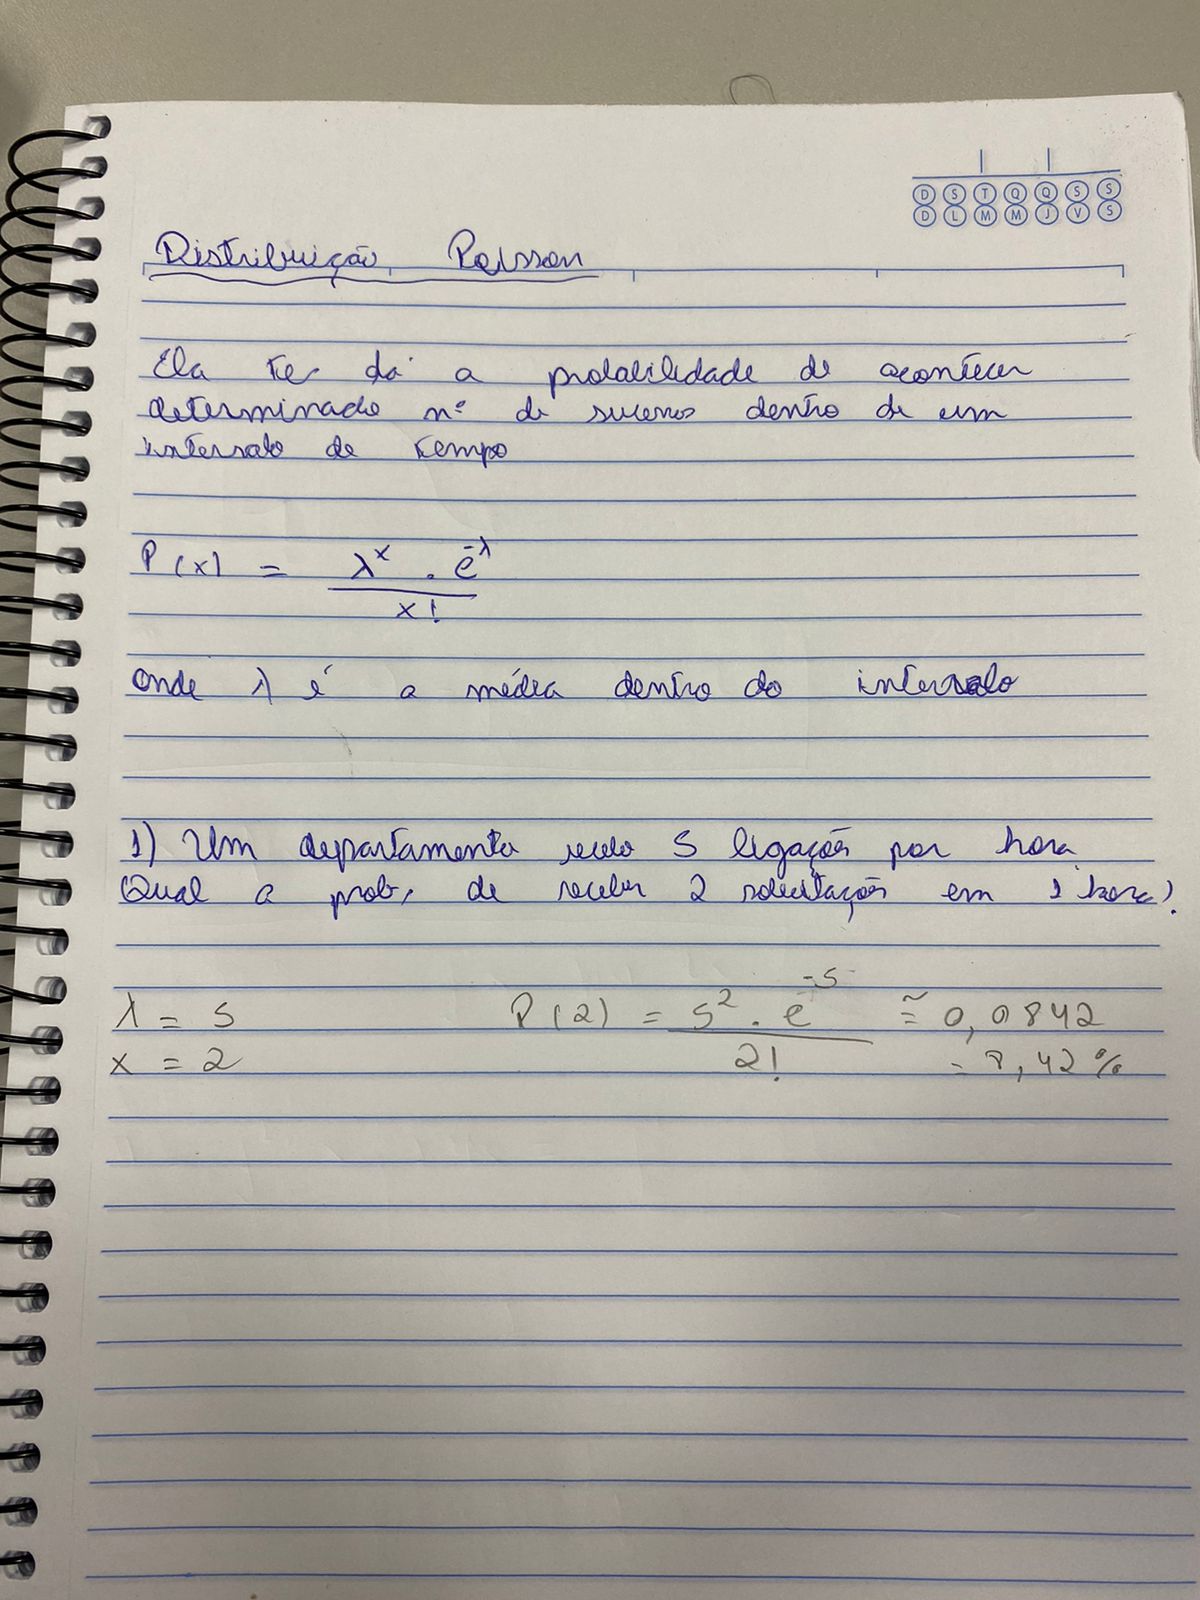 D S T Q Q S S
D L M M J V S
Distribuição Poisson
Ela te dá a probabilidade de acontecer
determinado nº de sucessos dentro de um
intervalo de tempo
P(x) = λˣ . e^-λ
x!
onde λ é a média dentro do intervalo
1) Um departamento recebe 5 ligações por hora.
Qual a prob. de receber 2 solicitações em 1 hora?
λ = 5 P(2) = 5² . e^-5 ≅ 0,0842
x = 2 2! = 8,42%